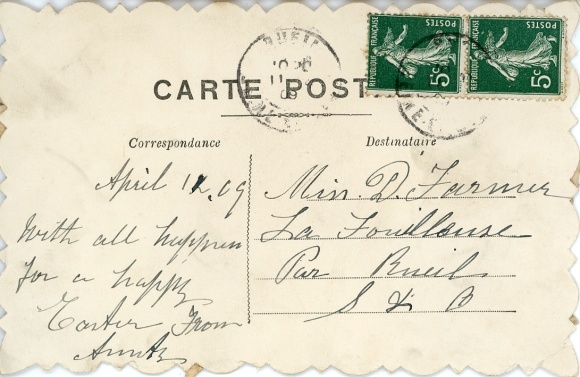 CARTE POST
Correspondance
Destinataire
April 12.09
With all
for a happy
Easter From
Miss. D. Farmer
La Fouilleuse
Par Rueil
S & O
RÉPUBLIQUE FRANÇAISE
POSTES
5c
RÉPUBLIQUE FRANÇAISE
POSTES
5c
RUEIL